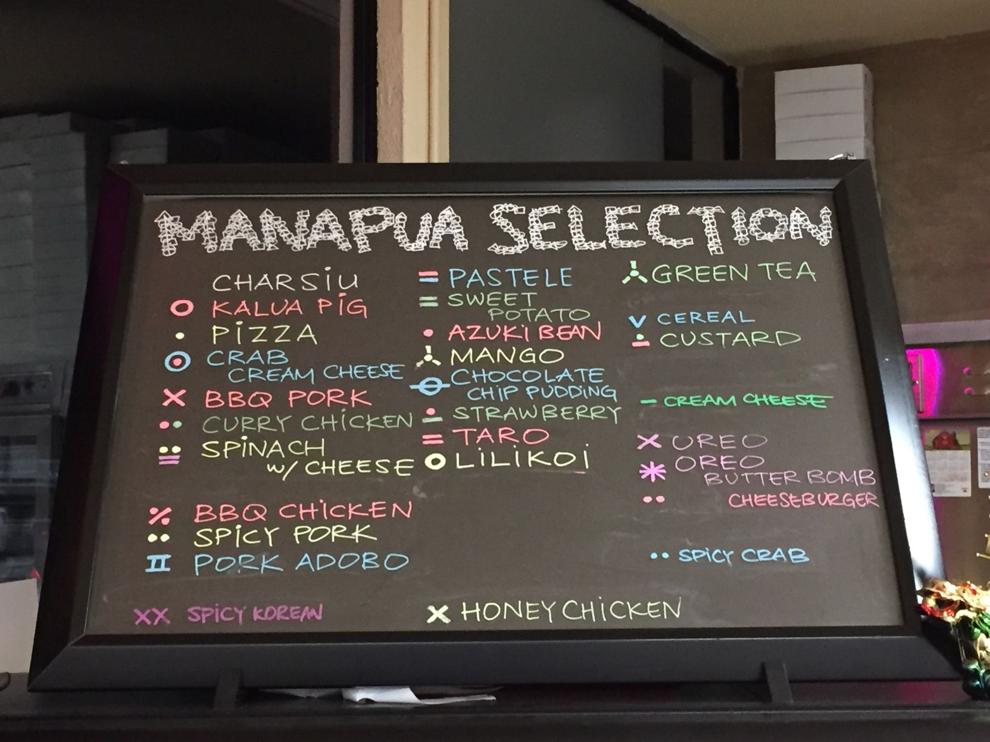 MANAPUA SELECTION
CHARSIU
KALUA PIG
PIZZA
CRAB
CREAM CHEESE
BBQ PORK
CURRY CHICKEN
SPINACH
w/ CHEESE
BBQ CHICKEN
SPICY PORK
PORK ADOBO
XX SPICY KOREAN
PASTELE
SWEET
POTATO
AZUKI BEAN
MANGO
CHOCOLATE
CHIP PUDDING
STRAWBERRY
TARO
LILIKOI
HONEY CHICKEN
GREEN TEA
CEREAL
CUSTARD
CREAM CHEESE
OREO
OREO
BUTTER BOMB
CHEESEBURGER
SPICY CRAB